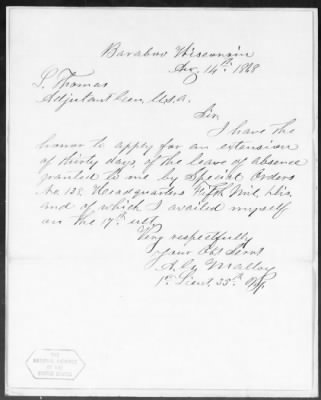 Baraboo Wisconsin
Aug 14th 1868
L. Thomas
Adjutant Gen. U.S.A.
Sir
I have the
honor to apply for an extension
of thirty days, of the leave of absence
granted to me by Special Orders
No. 132, Headquarters Fifth Mil. Dis.
and of which I availed myself
on the 17th ult.
Very respectfully
Your Obt Servt
A. G. Malloy
1st Lieut. 35th
THE
NATIONAL ARCHIVES
OF THE
UNITED STATES